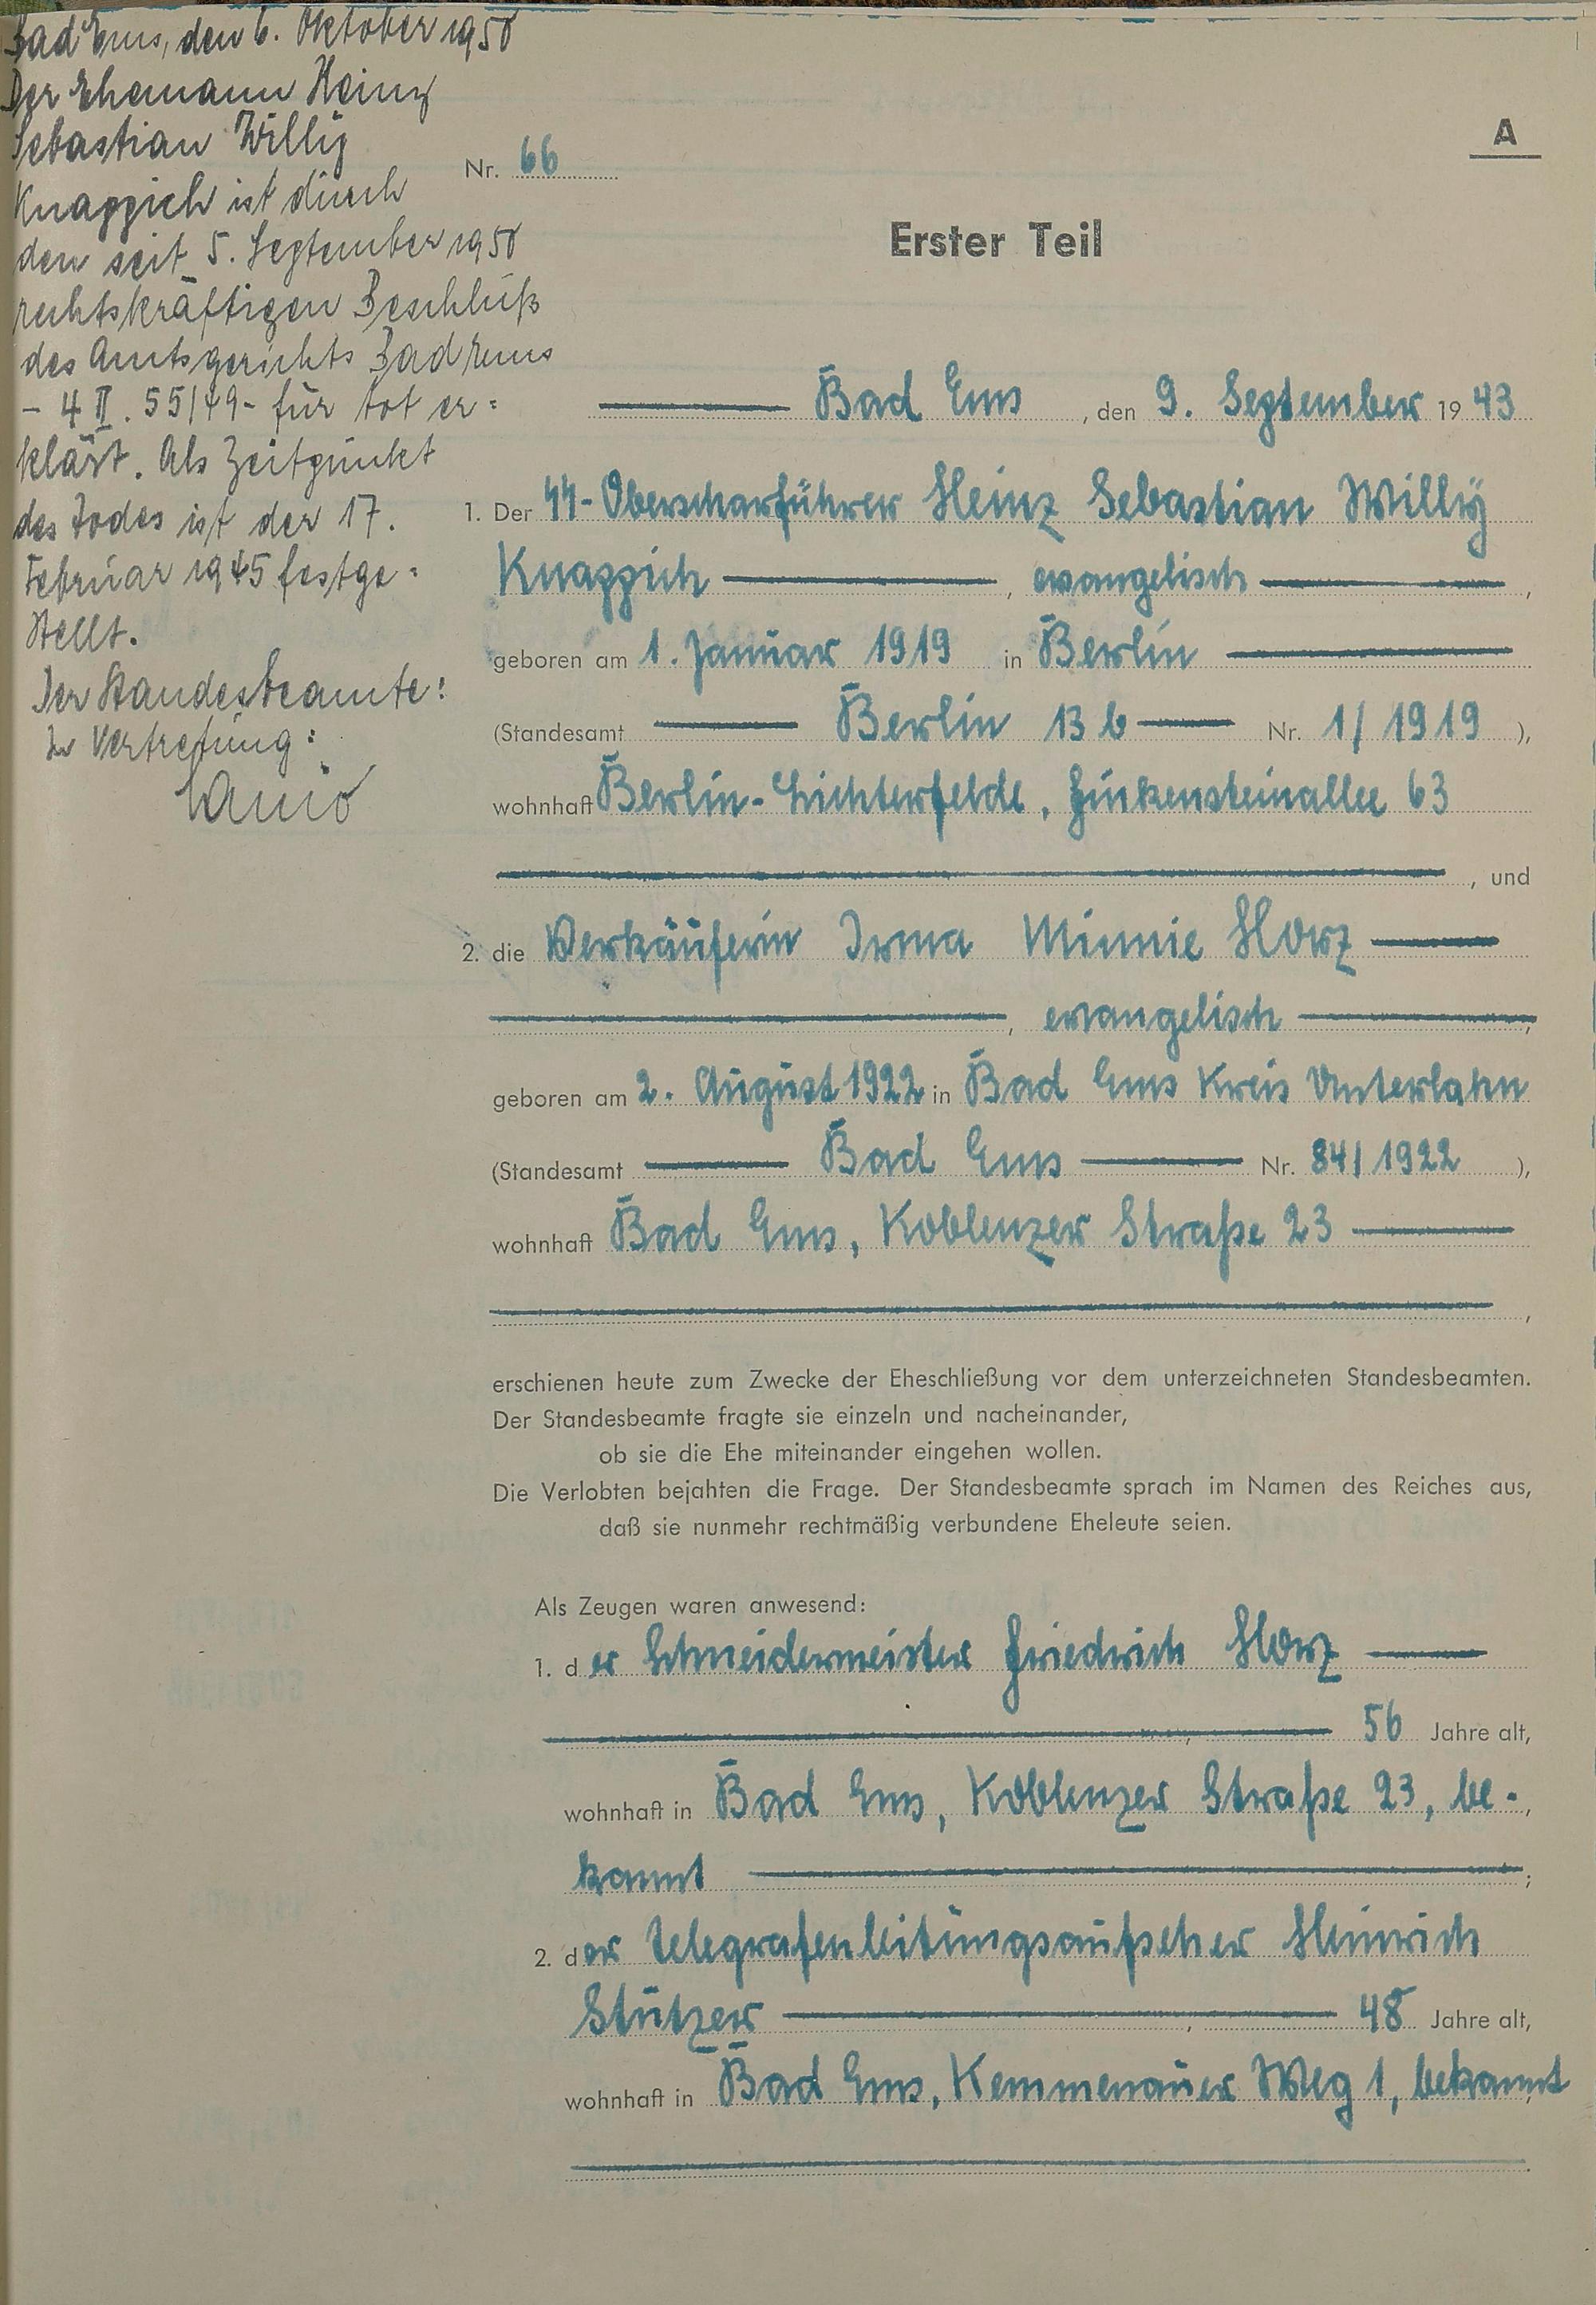 Bad Ems, den 6. Oktober 1950
Der Ehemann Heinz
Sebastian Willy
Knappich ist durch
den seit 5. September 1950
rechtskräftigen Beschluß
des Amtsgerichts Bad Ems
- 4 II. 55/49 - für tot er=
klärt. Als Zeitpunkt
des Todes ist der 17.
Februar 1945 festge=
stellt.
Der Standesbeamte:
In Vertretung:
A
Nr. 66
Erster Teil
Bad Ems, den 9. September 1943
1. Der ᛋᛋ-Oberscharführer Heinz Sebastian Willy
Knappich, evangelisch,
geboren am 1. Januar 1919 in Berlin
(Standesamt Berlin 13 b Nr. 1/1919),
wohnhaft Berlin-Lichterfelde, Finkensteinallee 63
, und
2. die Verkäuferin Irma Minnie Horz
, evangelisch,
geboren am 2. August 1922 in Bad Ems Kreis Unterlahn
(Standesamt Bad Ems Nr. 84/1922),
wohnhaft Bad Ems, Koblenzer Straße 23
,
erschienen heute zum Zwecke der Eheschließung vor dem unterzeichneten Standesbeamten.
Der Standesbeamte fragte sie einzeln und nacheinander,
ob sie die Ehe miteinander eingehen wollen.
Die Verlobten bejahten die Frage. Der Standesbeamte sprach im Namen des Reiches aus,
daß sie nunmehr rechtmäßig verbundene Eheleute seien.
Als Zeugen waren anwesend:
1. der Schneidermeister Friedrich Horz
, 56 Jahre alt,
wohnhaft in Bad Ems, Koblenzer Straße 23, be-,
kannt;
2. der Telegrafenleitungsaufseher Heinrich
Stützer, 48 Jahre alt,
wohnhaft in Bad Ems, Kemmenauer Weg 1, bekannt
.